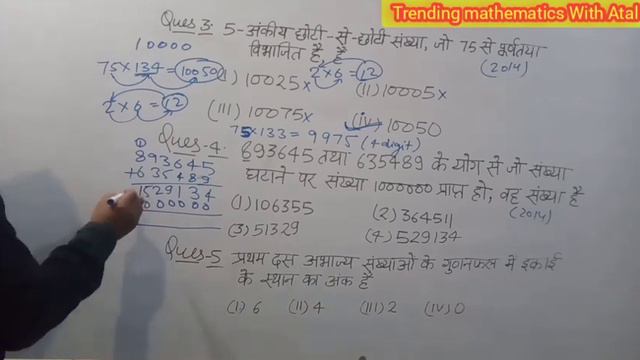 Trending mathematics With Atal
Ques 3: 5-अंकीय छोटी-से-छोटी संख्या, जो 75 से पूर्वतया
विभाजित है, है (2014)
10000
75×134=10050
2×6=12
(I) 10025×
2×6=12
(II) 10005×
(III) 10075×
(IV) 10050
75×133=9975 (4 digit)
Ques-4: 893645 तथा 635489 के योग से जो संख्या
घटाने पर संख्या 1000000 प्राप्त हो, वह संख्या है
(2014)
893645
+635489
1529134
000000
(1) 106355
(2) 364511
(3) 51329
(4) 529134
Ques-5 प्रथम दस अभाज्य संख्याओं के गुणनफल में इकाई
के स्थान का अंक है
(I) 6 (II) 4 (III) 2 (IV) 0